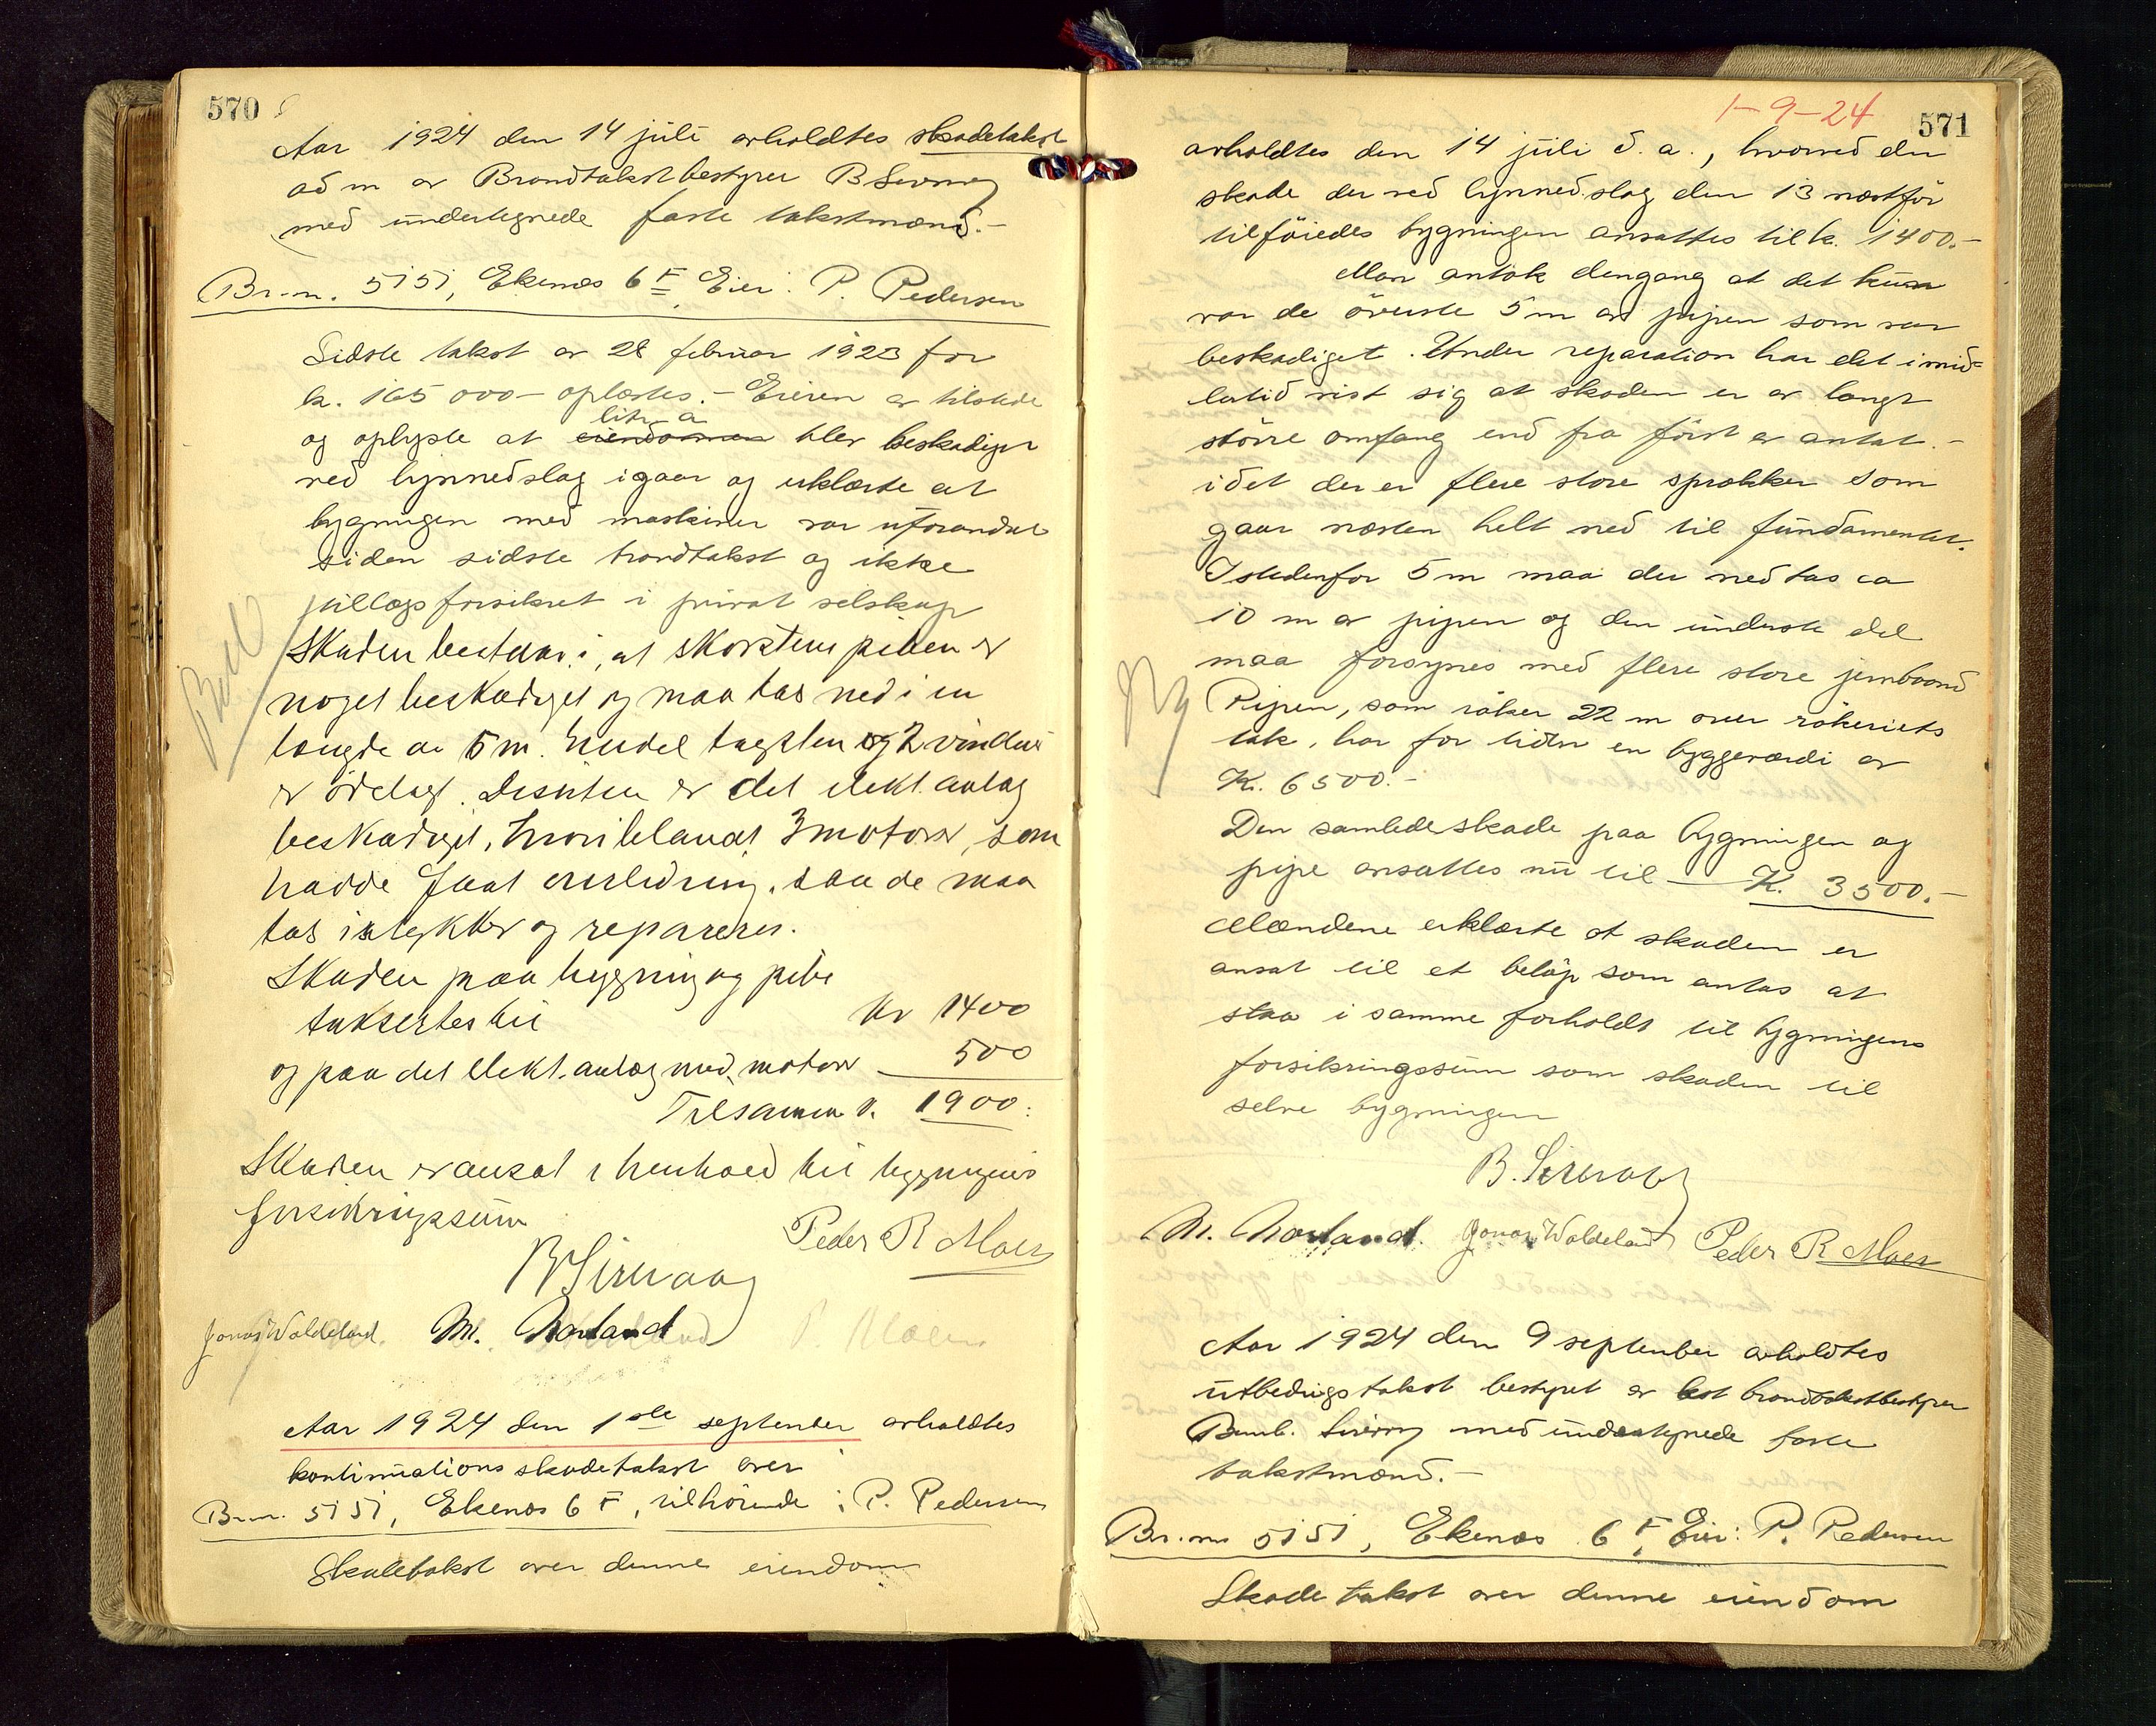 570
Aar 1924 den 14 juli avholdtes skadetakst
adm av Brandtakstbestyrer B Sirevaag
med undertegnede faste takstmænd.-
Br. n. 515i, Ekenæs 6 F Eier: P. Pedersen
Sidste takst av 28 februar 1923 for
k. 165 000- oplæstes.- Eieren er tilstede
litr a
og oplyste at eiendommen blev beskadiget
ved lynnedslag igaar og erklærte at
bygningen med maskiner var uforandret
siden sidste brandtakst og ikke
tillægsforsikret i privat selskap
Skaden bestaar i, at skorstens piben er
noget beskadiget og maa tas ned i en
længde av 5 m. Endel taksten og 2 vinduer
er ødelagt. Desuten er det elekt. anlæg
beskadiget, hvoriblandt 3 motorer, som
hadde faat overledning, saa de maa
tas istykker og repareres.
Skaden paa bygning og pibe
takseres til Kr 1400
og paa det elekt. anlæg med motorer 500
Tilsammen k. 1900:
Skaden er ansat i henhold til bygningens
forsikringssum
B Sirevaag Peder R Moen
Jonas Waldeland. M. Norland
P. Moen
Aar 1924 den 1ste september avholdtes
kontinuations skadetakst over
Br. nr. 515i, Ekenæs 6 F, tilhørende: P. Pedersen
Skadetakst over denne eiendom
1-9-24
571
avholdtes den 14 juli d. a., hvorved den
skade der ved lynnedslag den 13 næstför
tilföiedes bygningen ansattes til k. 1400.-
Man antok dengang at det kun
var de överste 5 m av pipen som var
beskadiget. Under reparation har det imid-
lertid vist sig at skaden er av langt
större omfang end fra först av antat.-
idet der er flere store sprækker som
gaar næsten helt ned til fundamentet.
Istedenfor 5 m maa der nedtas ca
10 m av pipen og den underste del
maa forsynes med flere store jernbaand
Ny
Pipen, som räker 22 m over rökeriets
tak, har for tiden en byggeværdi av
K. 6500.-
Den samlede skade paa bygningen og
pipe ansattes nu til - K. 3500.-
Mændene erklærte at skaden er
ansat til et belöp som antas at
staa i samme forholdt til bygningens
forsikringssum som skaden til
selve bygningen
B. Sirevaag
M. Norland. Jonas Waldeland Peder R Moen
Aar 1924 den 9 september avholdtes
utbedringstakst bestyret av best brandtakstbestyrer
Bernh. Sirevaag med undertegnede faste
takstmænd.-
Br. nr 515i, Ekenæs 6 F, Eier: P. Pedersen
Skadetakst over denne eiendom